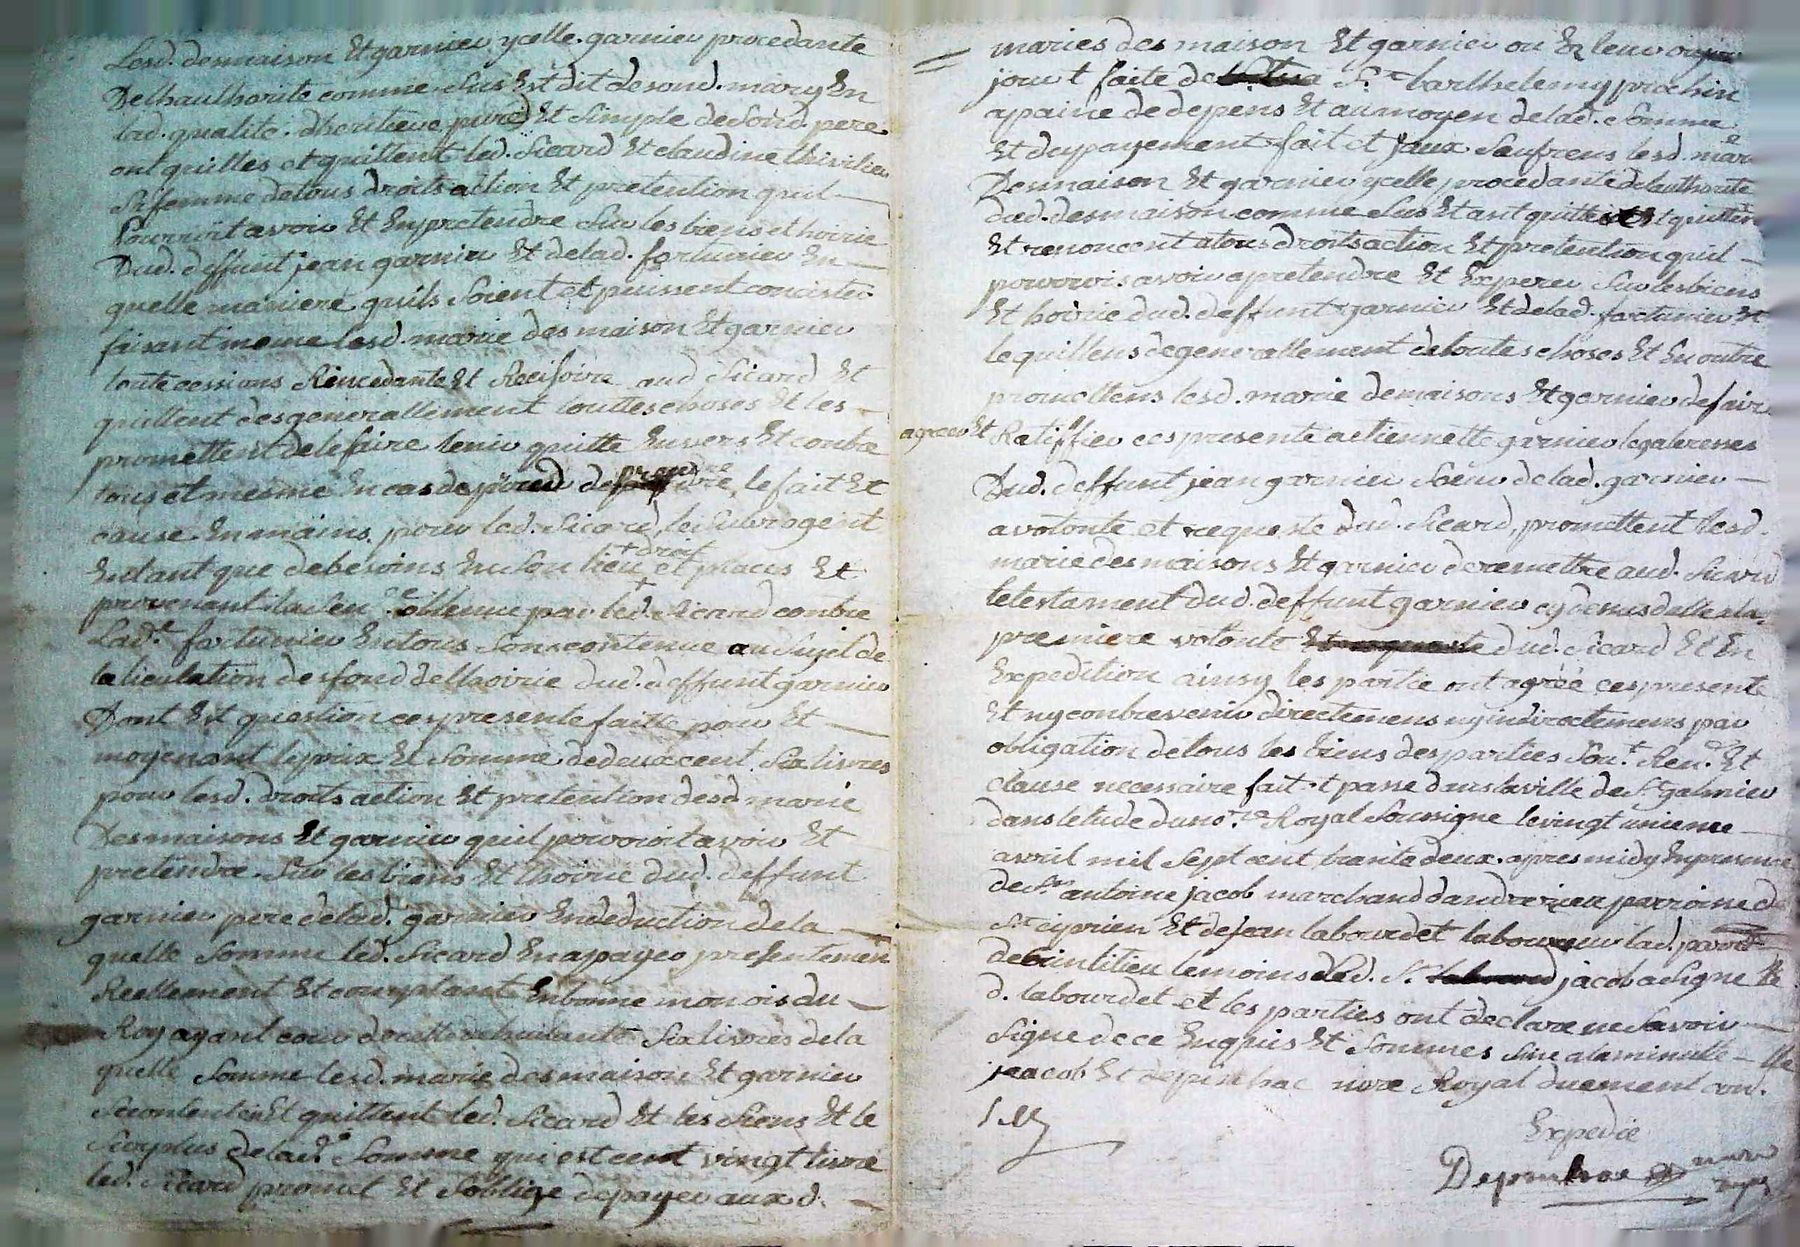 Lesd. desmaison Et garnier ycelle garnier procedante
De lhauthorite comme sus Est dit de sond. mary En
lad. qualite dheritiere pure Et Simple de Sond. pere
ont quittes et quittent led. Sicard Et claudine
Sa femme de tous droits action Et pretention quil
Pourroit avoir Et En pretendre Sur les biens et hoirie
Dud. deffunt jean garnier Et de lad. fortunier En
quelle maniere quils Soient et puissent concister
faisant meme lesd. marie des maison Et garnier
toute cessions Et aud Sicard Et
quittent des generallement touttes choses Et les
promettent de le faire tenir quitte Envers Et contre
tous et mesme En cas de prendre le fait Et
cause En mains pour led. Sicard, le Subrogent
Entant que de besoins En son lieu droit et places Et
provenant obtenue par led. Sicard contre
Lad.e fortunier En tous Son contenue au Sujet de
la liculation des fond de lhoirie dud. deffunt garnier
Dont Est question ces presente faitte pour Et
moyenant le prix Et Somme de deux cent Six livres
pour lesd. droits action Et pretention desd marie
Desmaisons Et garnier quil pouroit avoir Et
pretendre Sur les biens Et lhoirie dud. deffunt
garnier pere de lad. garnier En deduction de la
quelle Somme led. Sicard En a payer presentement
Reellement Et comptant En bonne monois du
Roy ayant cour quattre huitante Six livres de la
quelle Somme lesd. marie des maison Et garnier
Se contentent Et quittent led. Sicard Et les Siens Et le
Surplus de lad.e Somme qui est cent vingt livre
led. Sicard promet Et Soblige de payer aux d.
maries des maison Et garnier ou En leur
jour t faite de St barthelemy prochin
apaine de depens Et au moyen de lad. Somme
Et du payement fait et faux Soufrens lesd. marie
Desmaison Et garnier ycelle procedante de lauthorite
dud. desmaison comme Sus Et ont quittes Et quittent
Et renoncent a tous droits action Et pretention quil
pourrois avoir a pretendre Et Experer Sur les biens
Et hoirie dud. deffunt garnier Et de lad. fortunier Et
le quittens de generallement de toutes choses Et En outre
promettens lesd. marie demaisons Et garnier de faire
agreer Et Ratiffier ces presente a etiennette garnier legateresses
Dud. deffunt jean garnier Soeur de lad. garnier
a volonte et requeste dud. Sicard, promettent lesd.
marie des maisons Et garnier de remettre aud. Sicard
le testament dud. deffunt garnier cy desus datte a la
premiere volonte dud. Sicard Et En
Expedition ainsy les partie ont agréé ces presente
Et ny contrevenir directemens ny indirectemens par
obligation de tous les biens des parties Sou.t Ren.on Et
clause necessaire fait et passe dans la ville de St galmier
dans letude du no.re Royal Soussigne le vingt unieme
avril mil Sept cent trante deux apres midy En presence
de Sr antoine jacob marchand parroisse de
St ciprien Et de jean labourdet laboureur lad. parr.
temoins led. Sr jacob a Signe Et le
d. labourdet et les parties ont declare ne Savoir
Signe de ce Enquis Et Sommes Sine a la minutte
jeacob Et nore Royal duement con.
Expedié